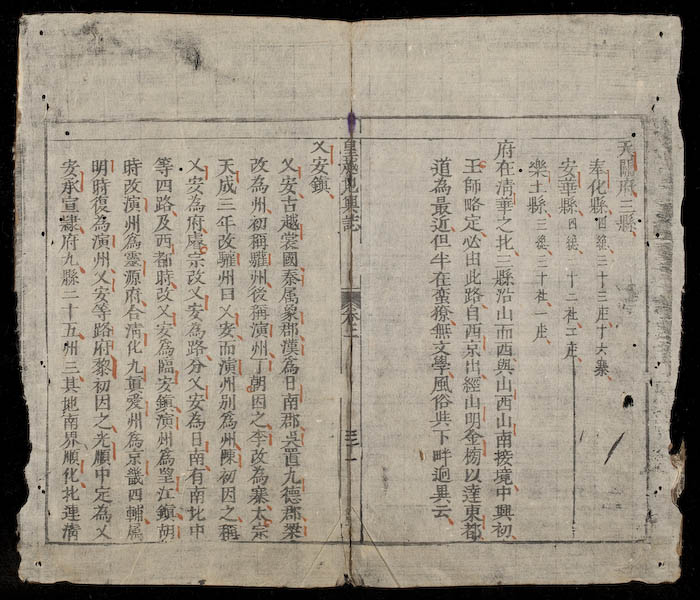 天關府三縣
奉化縣四緫三十三庄十六寨
安華縣四緫二十二社二庄
樂土縣三緫三十社一庄
府在清華之北三縣沿山而西與山西山南接境中興初
王師略定必由此路自西京出經山明金榜以達東都
道為最近但半在蛮獠無文學風俗與下畔迥異云
皇越地輿誌
卷二
乂安鎮
乂安古越裳國秦属象郡漢為日南郡吳置九德郡梁
改為州初稱驩州後稱演州丁朝因之李改為寨太宗
天成三年改驩州曰乂安而演州別為州陳初因之稱
乂安為府處宗改乂安為路分乂安為日南有南北中
等四路及西都時改乂安為臨安鎮演州為望江鎮胡
時改演州為靈源府合清化九眞愛州為京畿四輔属
明時復為演州乂安等路府黎初因之光順中定為乂
安承宣隸府九縣二十五州三其地南界順化北連清